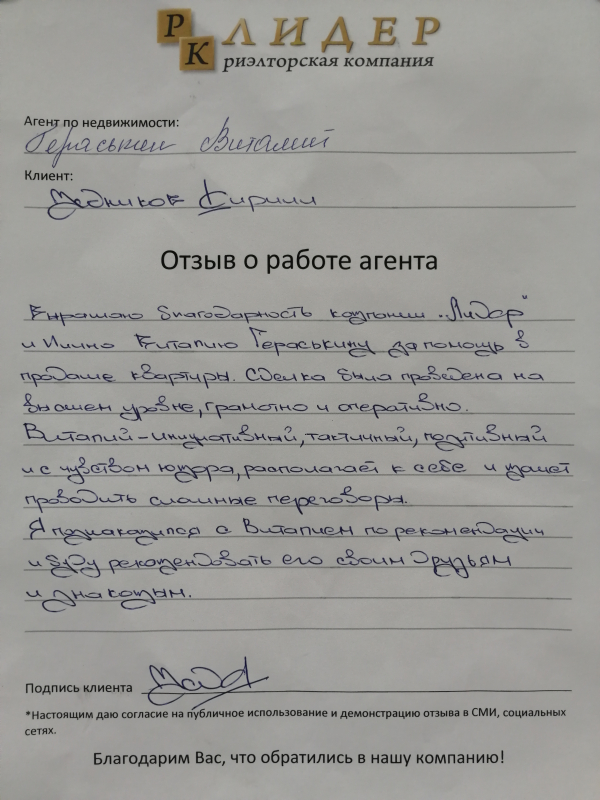 РК ЛИДЕР
риэлторская компания
Агент по недвижимости:
Гераськин Виталий
Клиент:
Медников Кирилл
Отзыв о работе агента
Выражаю благодарность компании "Лидер"
и Лично Виталию Гераськину за помощь в
продаже квартиры. Сделка была проведена на
высшем уровне, грамотно и оперативно.
Виталий - инициативный, тактичный, позитивный
и с чувством юмора, располагает к себе и может
проводить сложные переговоры.
Я познакомился с Виталием по рекомендации
и буду рекомендовать его своим друзьям
и знакомым.
Подпись клиента
*Настоящим даю согласие на публичное использование и демонстрацию отзыва в СМИ, социальных
сетях.
Благодарим Вас, что обратились в нашу компанию!